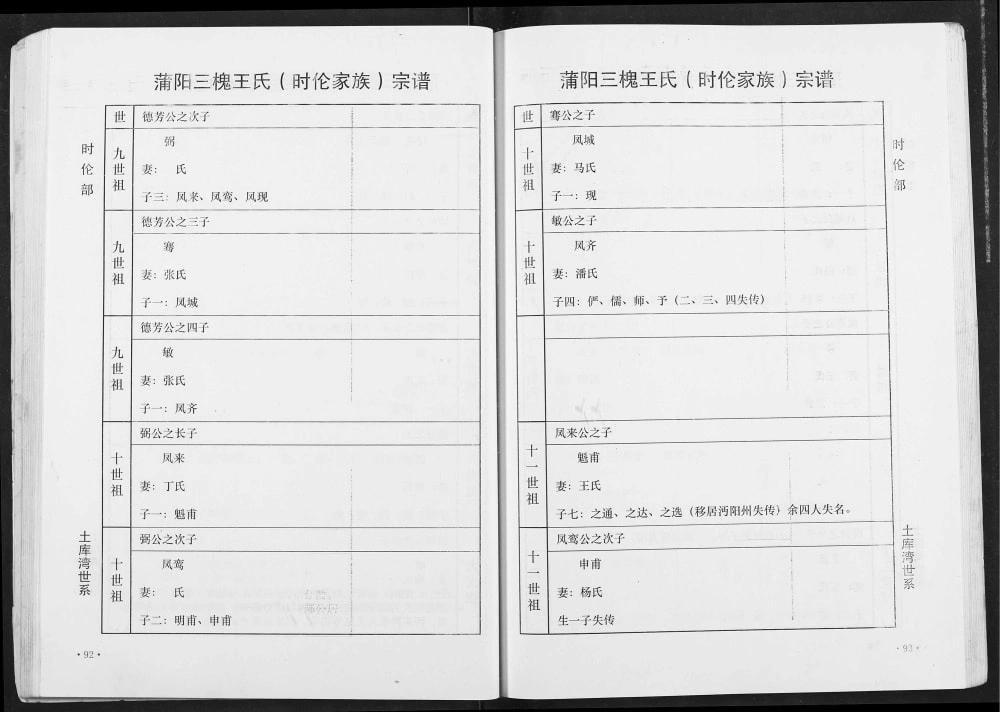 蒲阳三槐王氏(时伦家族)宗谱
时伦部
世
德芳公之次子
九世祖
弼
妻: 氏
子三: 凤来、凤鸾、凤现
德芳公之三子
九世祖
骞
妻: 张氏
子一: 凤城
德芳公之四子
九世祖
敏
妻: 张氏
子一: 凤齐
弼公之长子
十世祖
凤来
妻: 丁氏
子一: 魁甫
弼公之次子
十世祖
凤鸾
妻: 氏
子二: 明甫、申甫
土库湾世系
·92·
蒲阳三槐王氏(时伦家族)宗谱
时伦部
世
骞公之子
十世祖
凤城
妻: 马氏
子一: 现
敏公之子
十世祖
凤齐
妻: 潘氏
子四: 俨、儒、师、予(二、三、四失传)
凤来公之子
十一世祖
魁甫
妻: 王氏
子七: 之通、之达、之选(移居沔阳州失传)余四人失名。
凤鸾公之次子
十一世祖
申甫
妻: 杨氏
生一子失传
土库湾世系
·93·